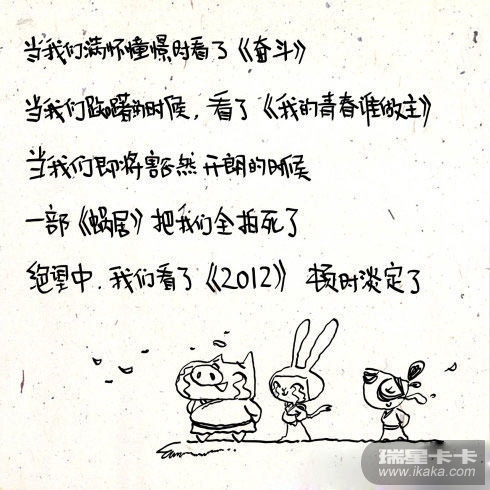 当我们满怀憧憬时看了《奋斗》
当我们踟躇的时候，看了《我的青春谁做主》
当我们即将豁然开朗的时候
一部《蜗居》把我们全拍死了
绝望中，我们看了《2012》 顿时淡定了
瑞星卡卡
www.ikaka.com